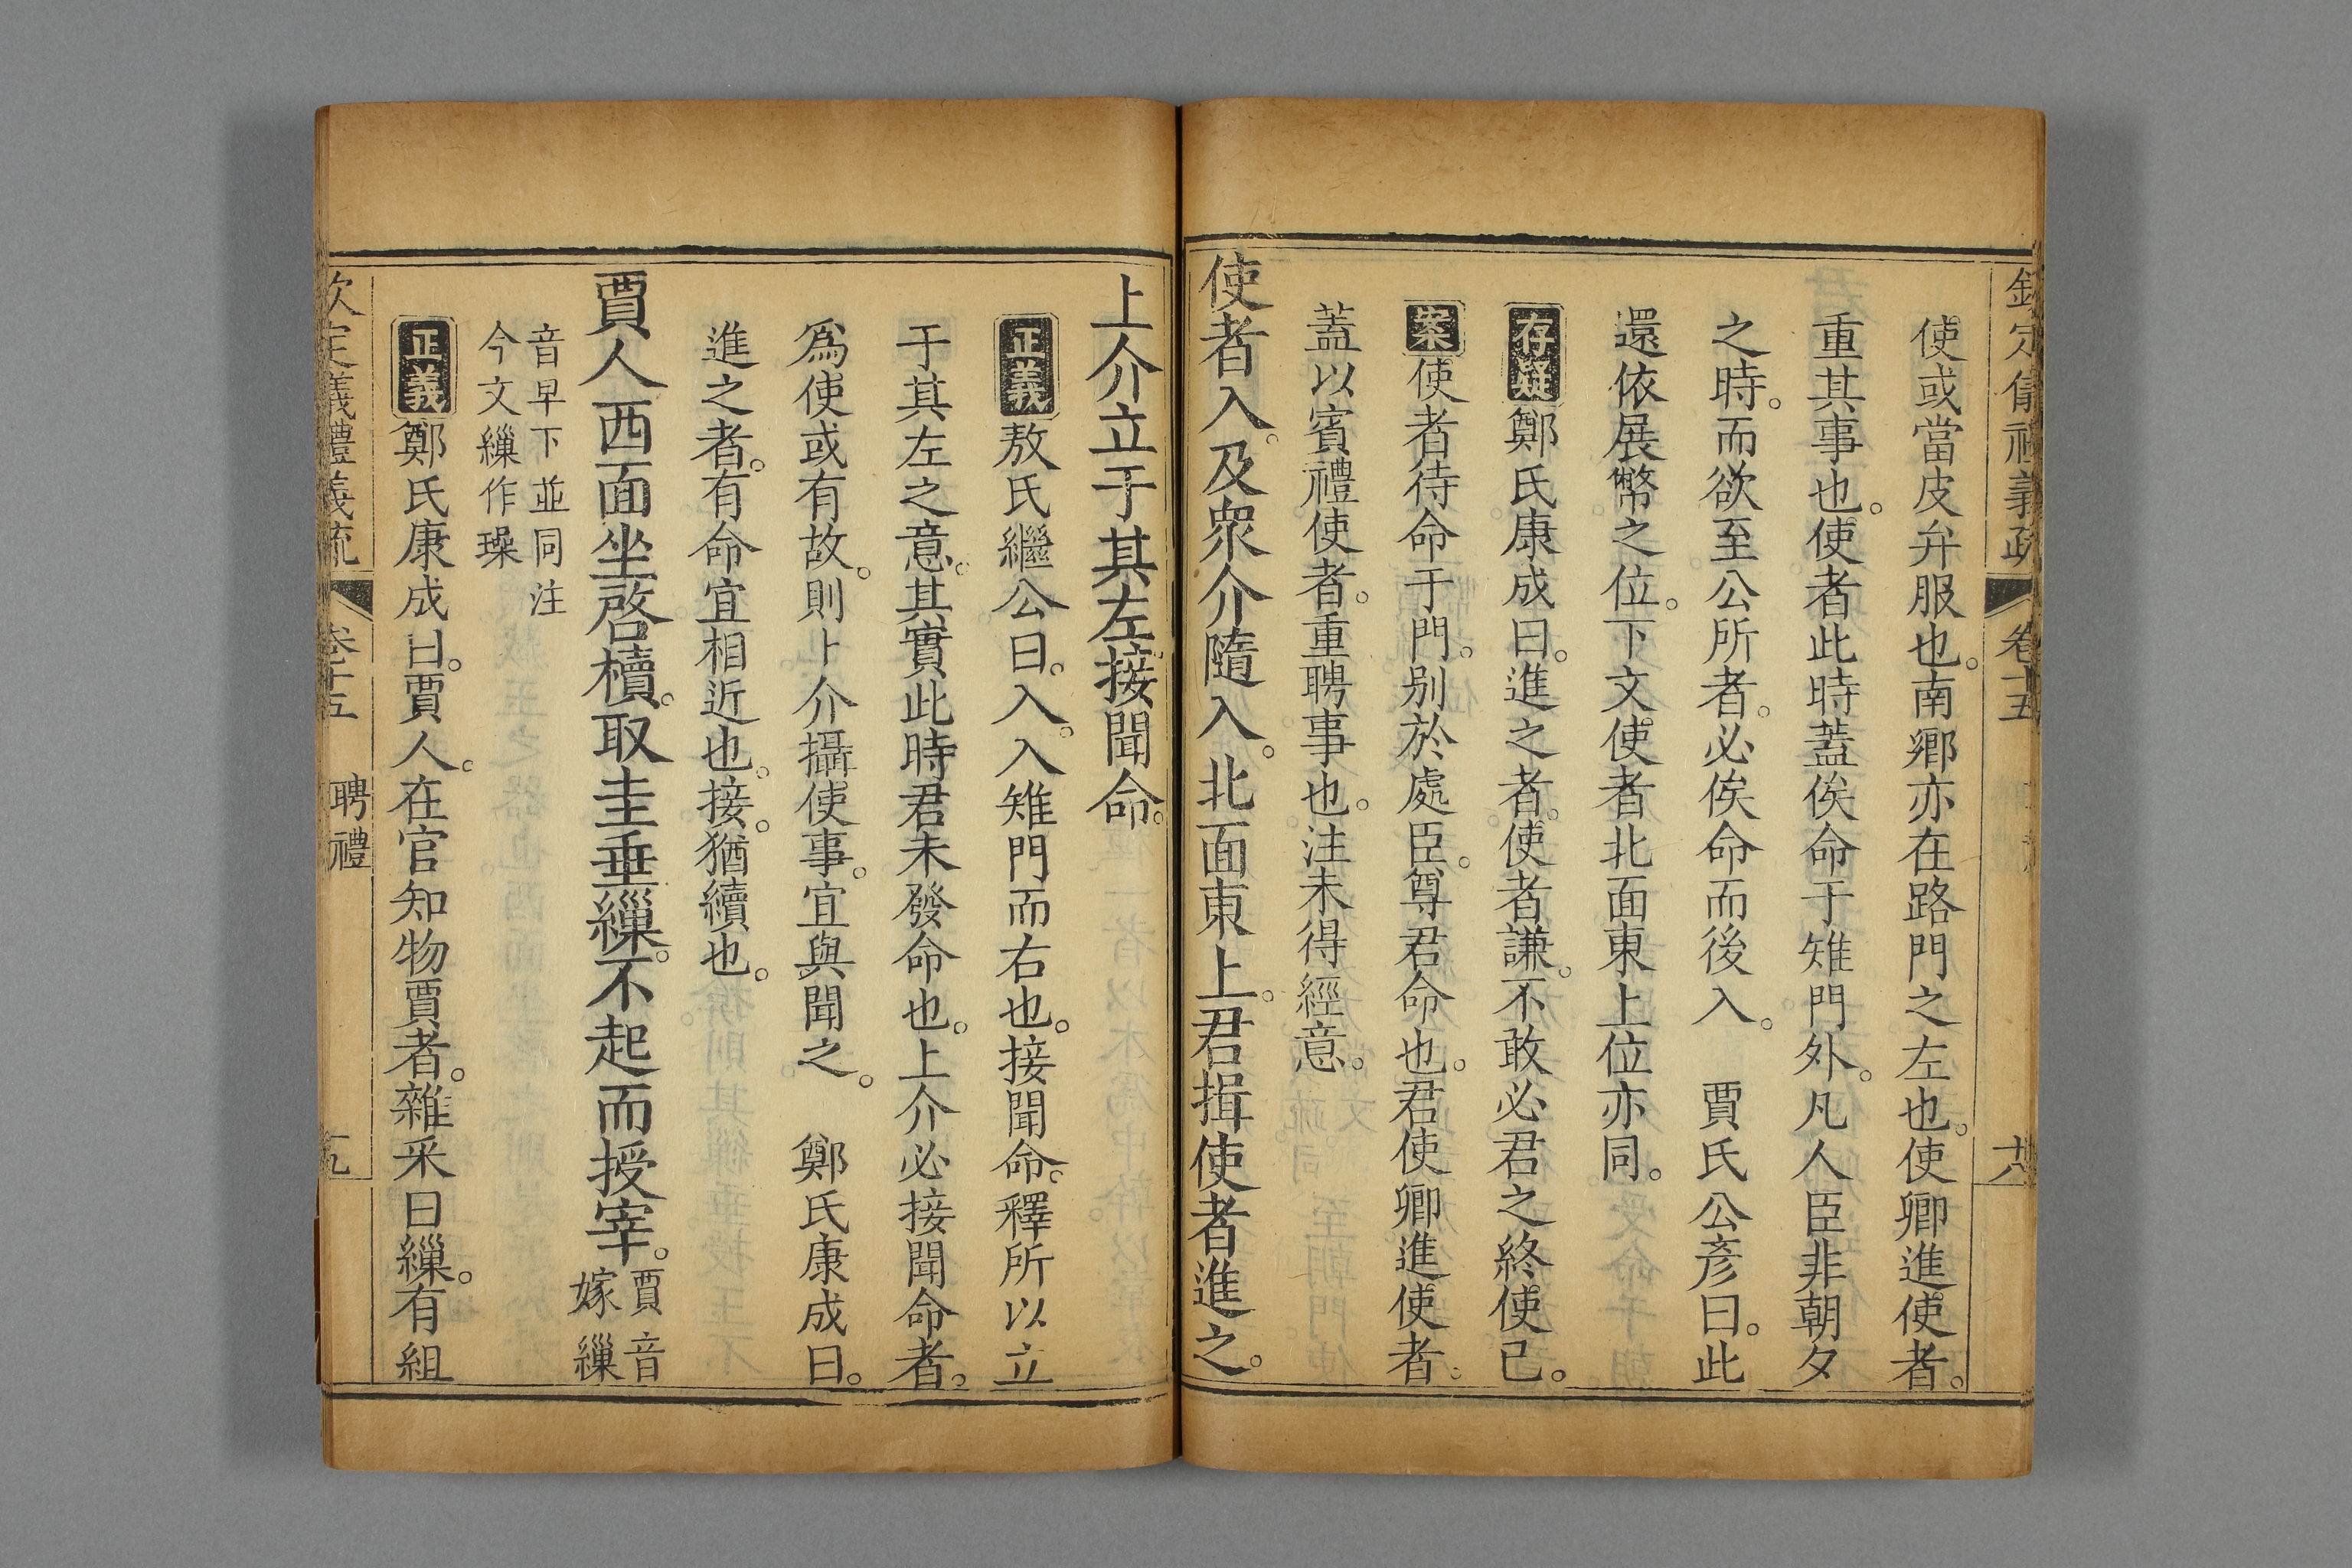 欽定儀禮義疏 卷十五 十八
使或當皮弁服也。南鄉亦在路門之左也。使卿進使者。
重其事也。使者此時蓋俟命于雉門外。凡人臣非朝夕
之時。而欲至公所者。必俟命而後入。 賈氏公彥曰。此
還依展幣之位。下文使者北面東上位亦同。
存疑鄭氏康成曰。進之者。使者謙。不敢必君之終使己。
案使者待命于門。别於處臣。尊君命也。君使卿進使者。
蓋以賓禮使者。重聘事也。注未得經意。
使者入。及眾介隨入。北面東上。君揖使者進之。
上介立于其左。接聞命。
正義敖氏繼公曰。入。入雉門而右也。接聞命。釋所以立
于其左之意。其實此時君未發命也。上介必接聞命者。
爲使或有故。則上介攝使事。宜與聞之。 鄭氏康成曰。
進之者。有命宜相近也。接。猶續也。
賈人西面坐啓櫝。取圭垂繅。不起而授宰。賈音嫁繅
音早下並同注
今文繅作璪
正義鄭氏康成曰。賈人。在官知物賈者。雜采曰繅。有組
欽定義禮義疏 卷十五 聘禮 十九